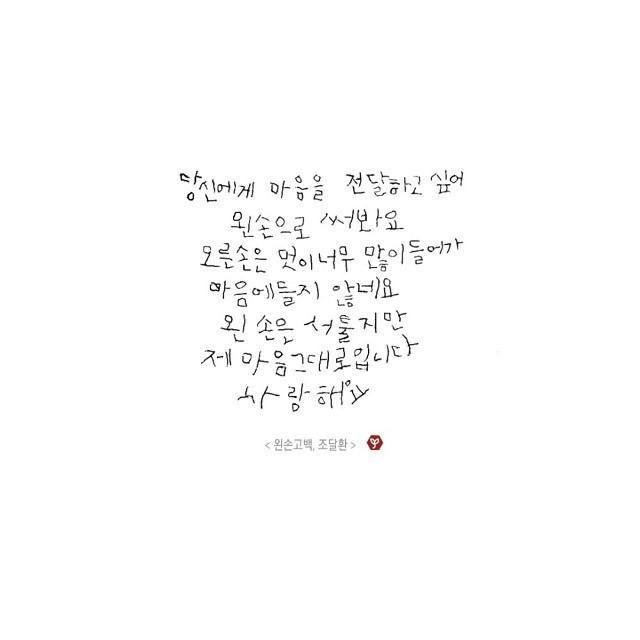 당신에게 마음을 전달하고 싶어
왼손으로 써봐요
오른손은 멋이너무 많이들어가
마음에들지 않네요
왼 손은 서툴지만
제 마음그대로입니다
사랑해요
< 왼손고백, 조달환 >